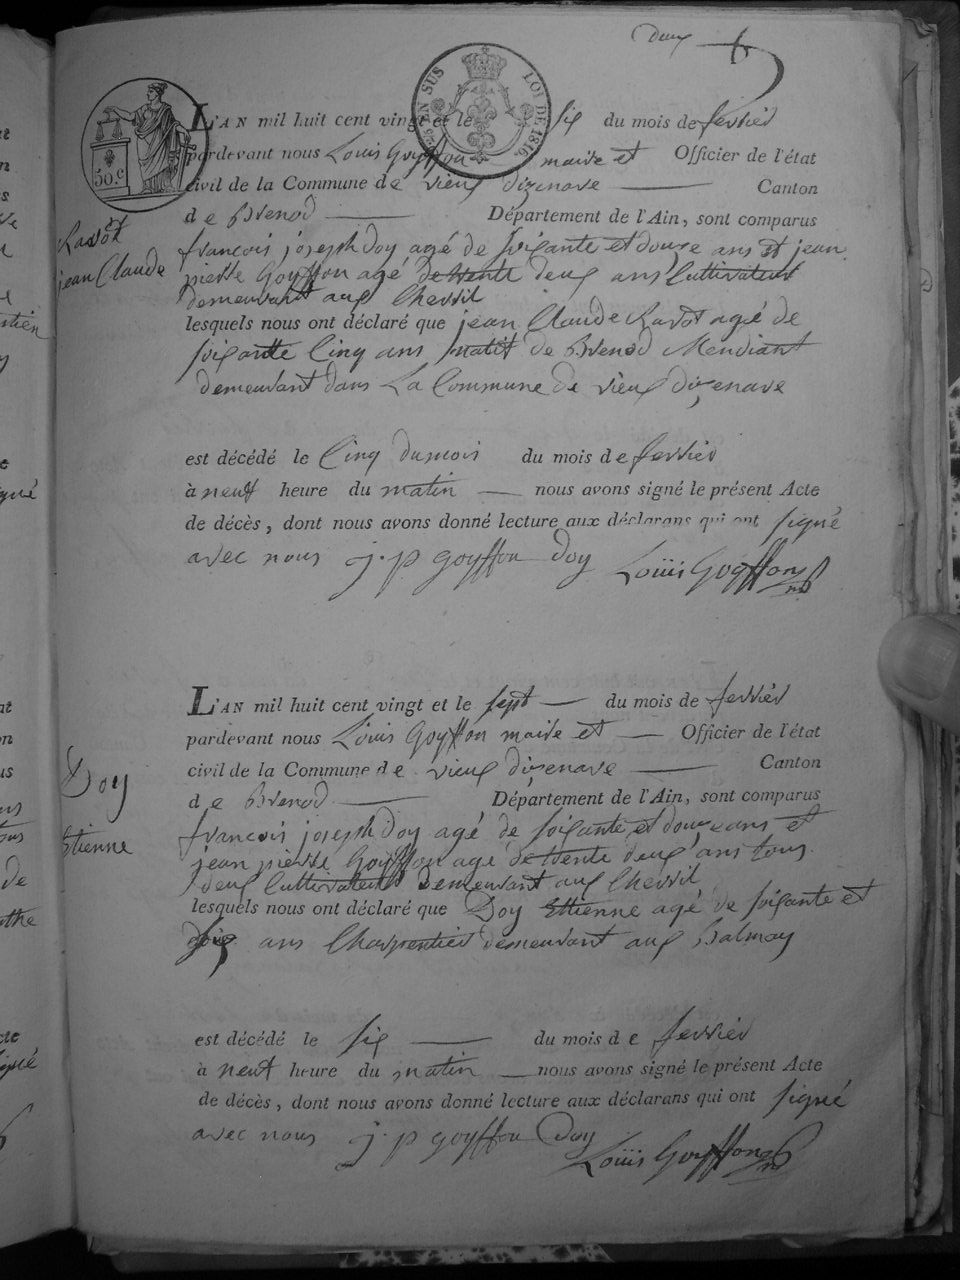 deux
25 EN SUS LOI DE 1816.
50.c
L'AN mil huit cent vingt et le six du mois de fevrier
pardevant nous Louis Goyffon maire et Officier de l'état
civil de la Commune de vieux dizenave Canton
de Brenod Département de l'Ain, sont comparus
Ravot
jean Claude
francois joseph Doy agé de soixante et douze ans et jean
pierre Goyffon agé de trente deux ans Cultivateur
demeurant aux Chevril
lesquels nous ont déclaré que jean Claude Ravot agé de
soixante Cinq ans natif de Brenod Mendiant
demeurant dans La Commune de vieux dizenave
est décédé le Cinq du mois du mois de fevrier
à neuf heure du matin nous avons signé le présent Acte
de décès, dont nous avons donné lecture aux déclarans qui ont signé
avec nous j. p goyffon Doy Louis Goyffon
L'AN mil huit cent vingt et le sept du mois de fevrier
pardevant nous Louis Goyffon maire et Officier de l'état
civil de la Commune de vieux dizenave Canton
de Brenod Département de l'Ain, sont comparus
Doy
Etienne
francois joseph Doy agé de soixante et douze ans et
jean pierre Goyffon agé de trente deux ans tous
deux Cultivateurs Demeurant aux Chevril
lesquels nous ont déclaré que Doy Ettienne agé de soixante et
ans Charpentier demeurant aux Balmay
est décédé le six du mois de fevrier
à neuf heure du matin nous avons signé le présent Acte
de décès, dont nous avons donné lecture aux déclarans qui ont signé
avec nous j. p goyffon Doy
Louis Goyffon